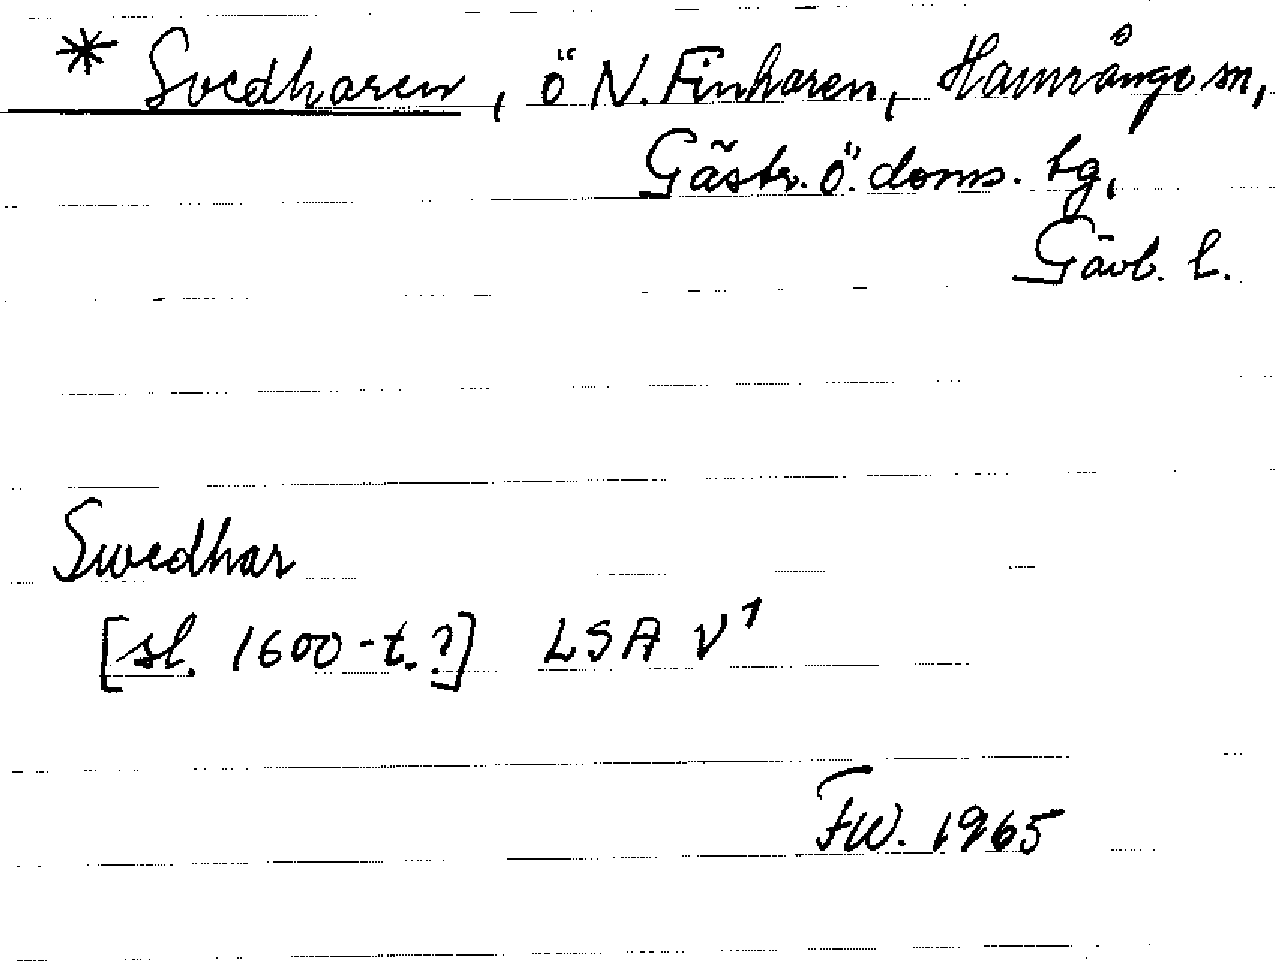 * Svedharen, ö N. Finharen, Hamrånge sn,
Gästr. ö. doms. tg,
Gävb. l.
Swedhar
[sl. 1600-t.?] LSA V¹
FW. 1965